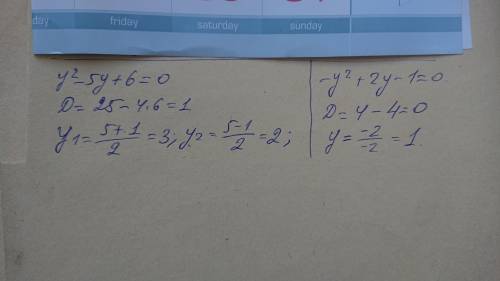 day friday saturday sunday
y²-5y+6=0
D=25-4·6=1
y1=5+1/2=3; y2=5-1/2=2;
-y²+2y-1=0
D=4-4=0
y=-2/-2=1.